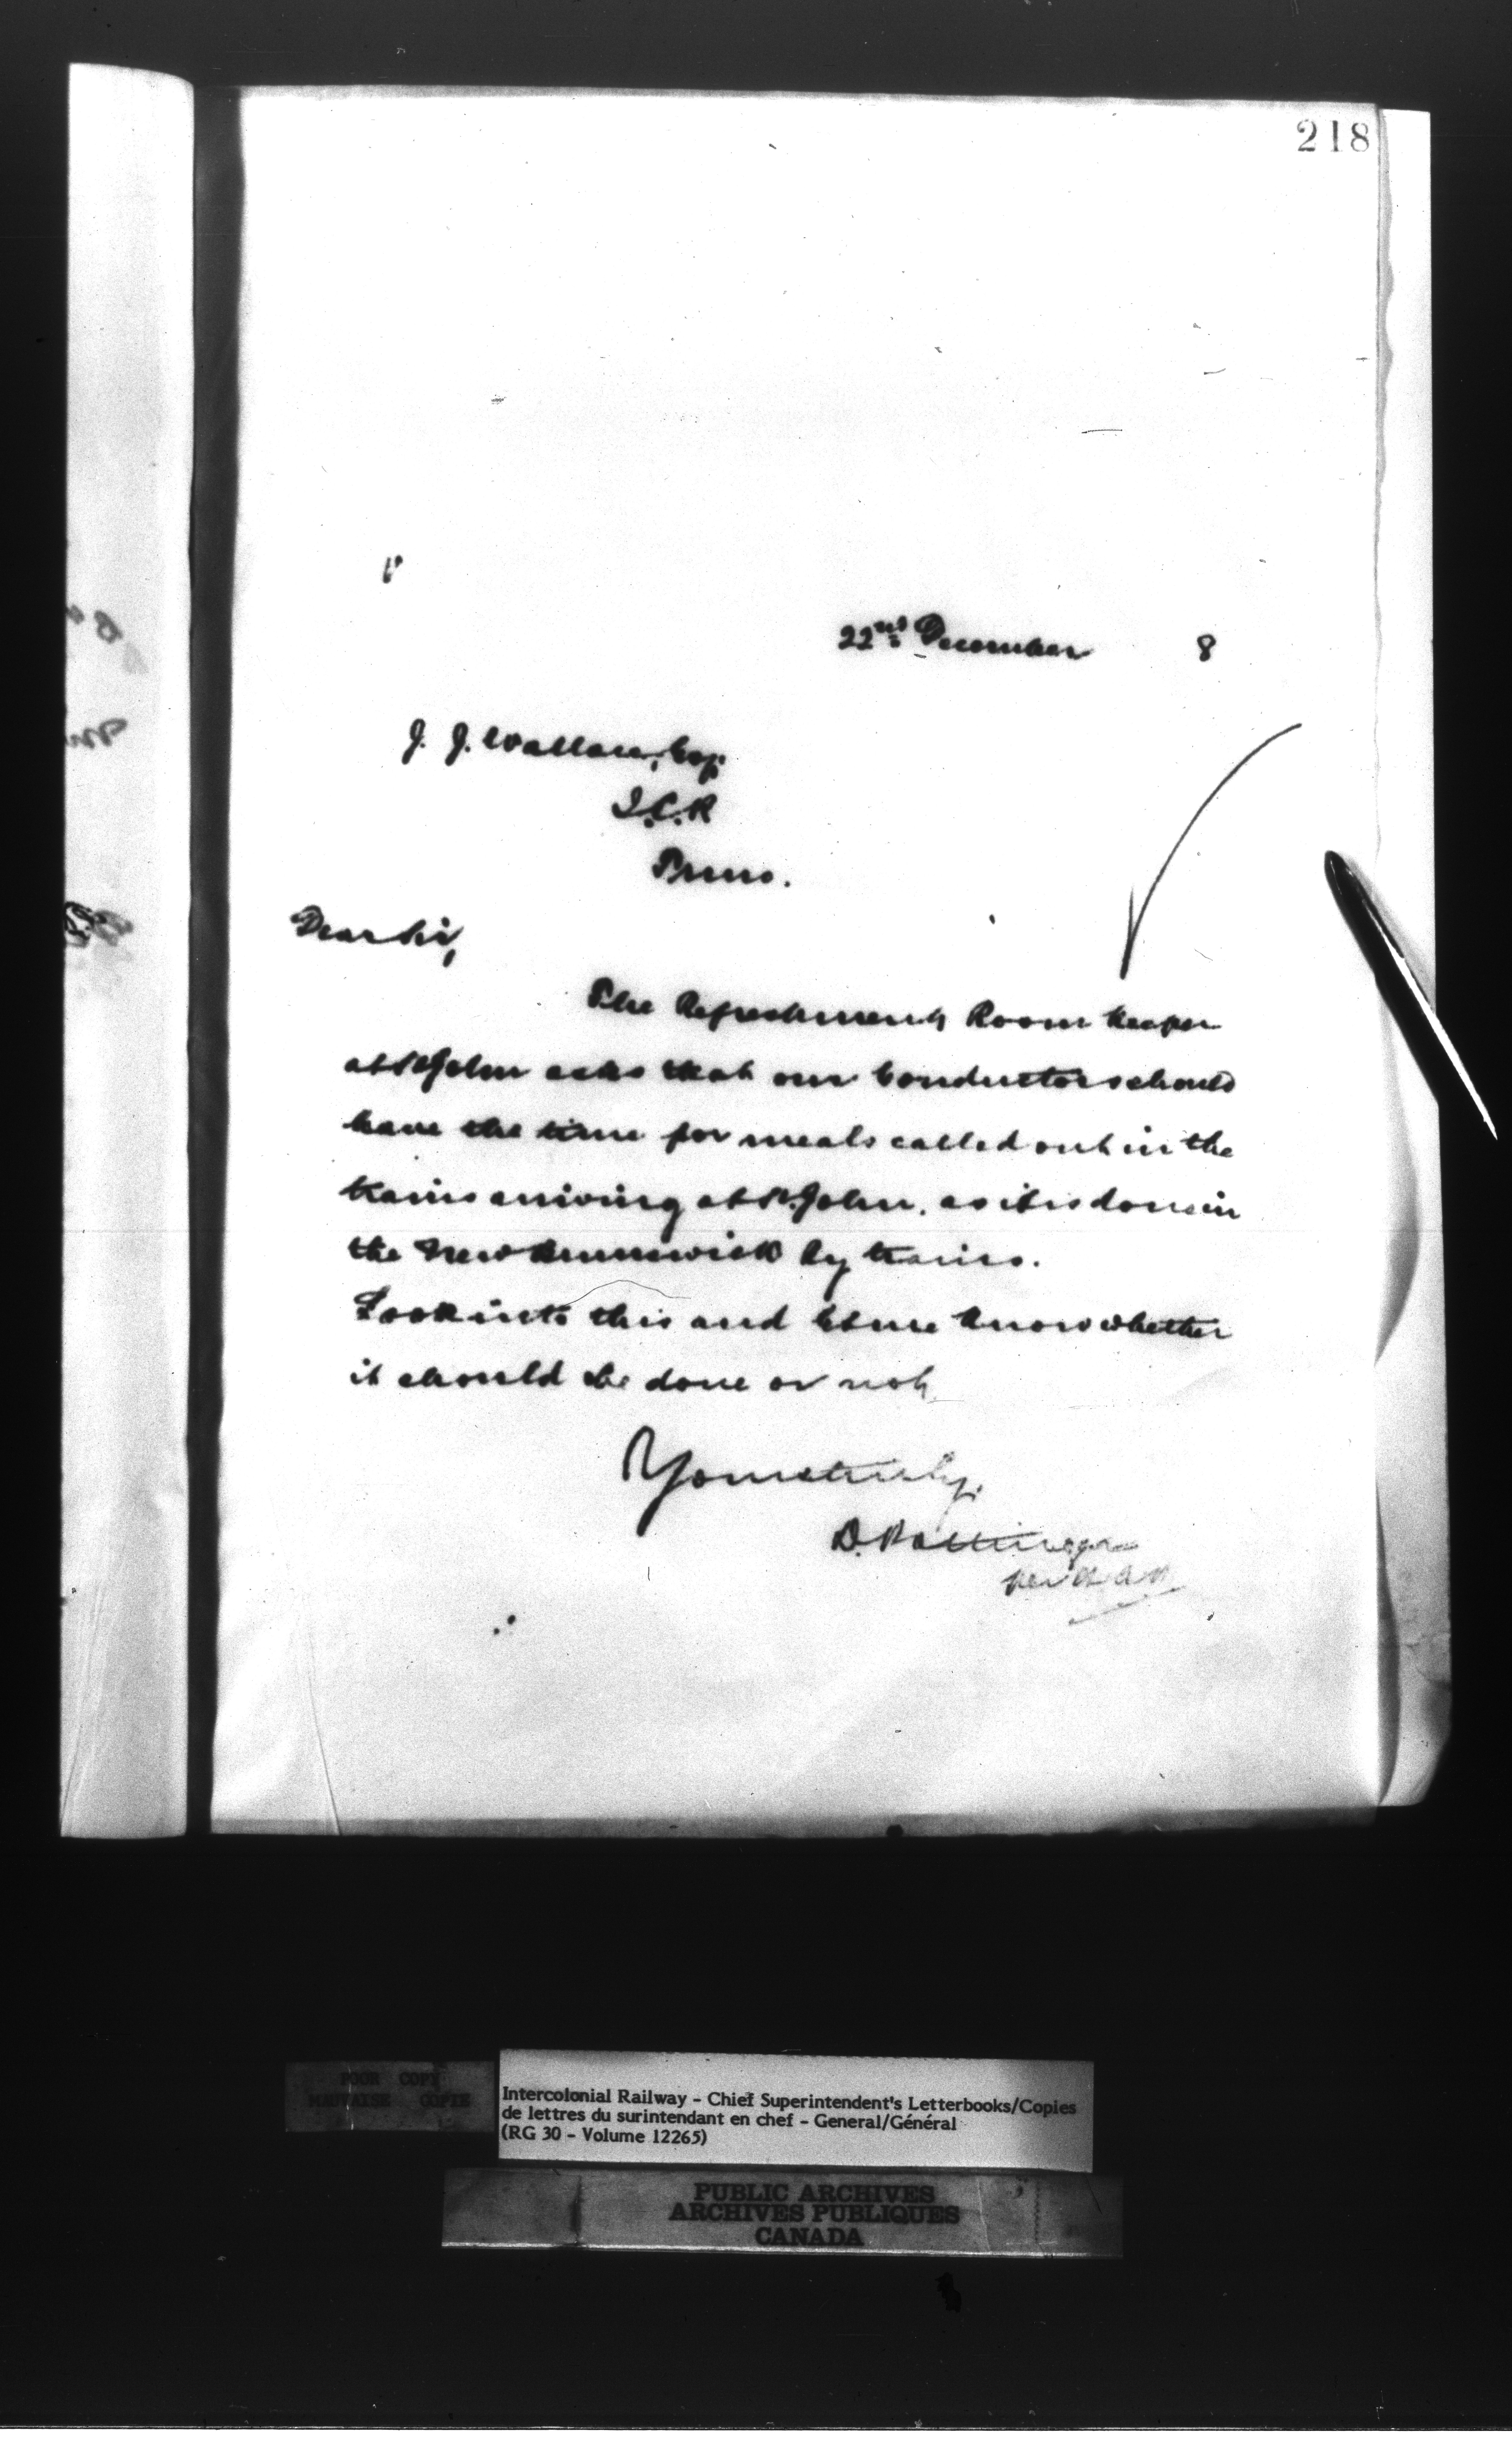 218
22nd December 8
J. J. Wallace, Esq.
I.C.R
Truro.
Dear Sir,
The Refreshment Room Keeper
at St John asks that our Conductors should
have the time for meals called out in the
trains arriving at St. John, as it is done in
the New Brunswick Ry trains.
Look into this and let me know whether
it should be done or not
Yours truly,
D. Pottinger
POOR COPY
MAUVAISE COPIE
Intercolonial Railway - Chief Superintendent's Letterbooks/Copies
de lettres du surintendant en chef - General/Général
(RG 30 - Volume 12265)
PUBLIC ARCHIVES
ARCHIVES PUBLIQUES
CANADA